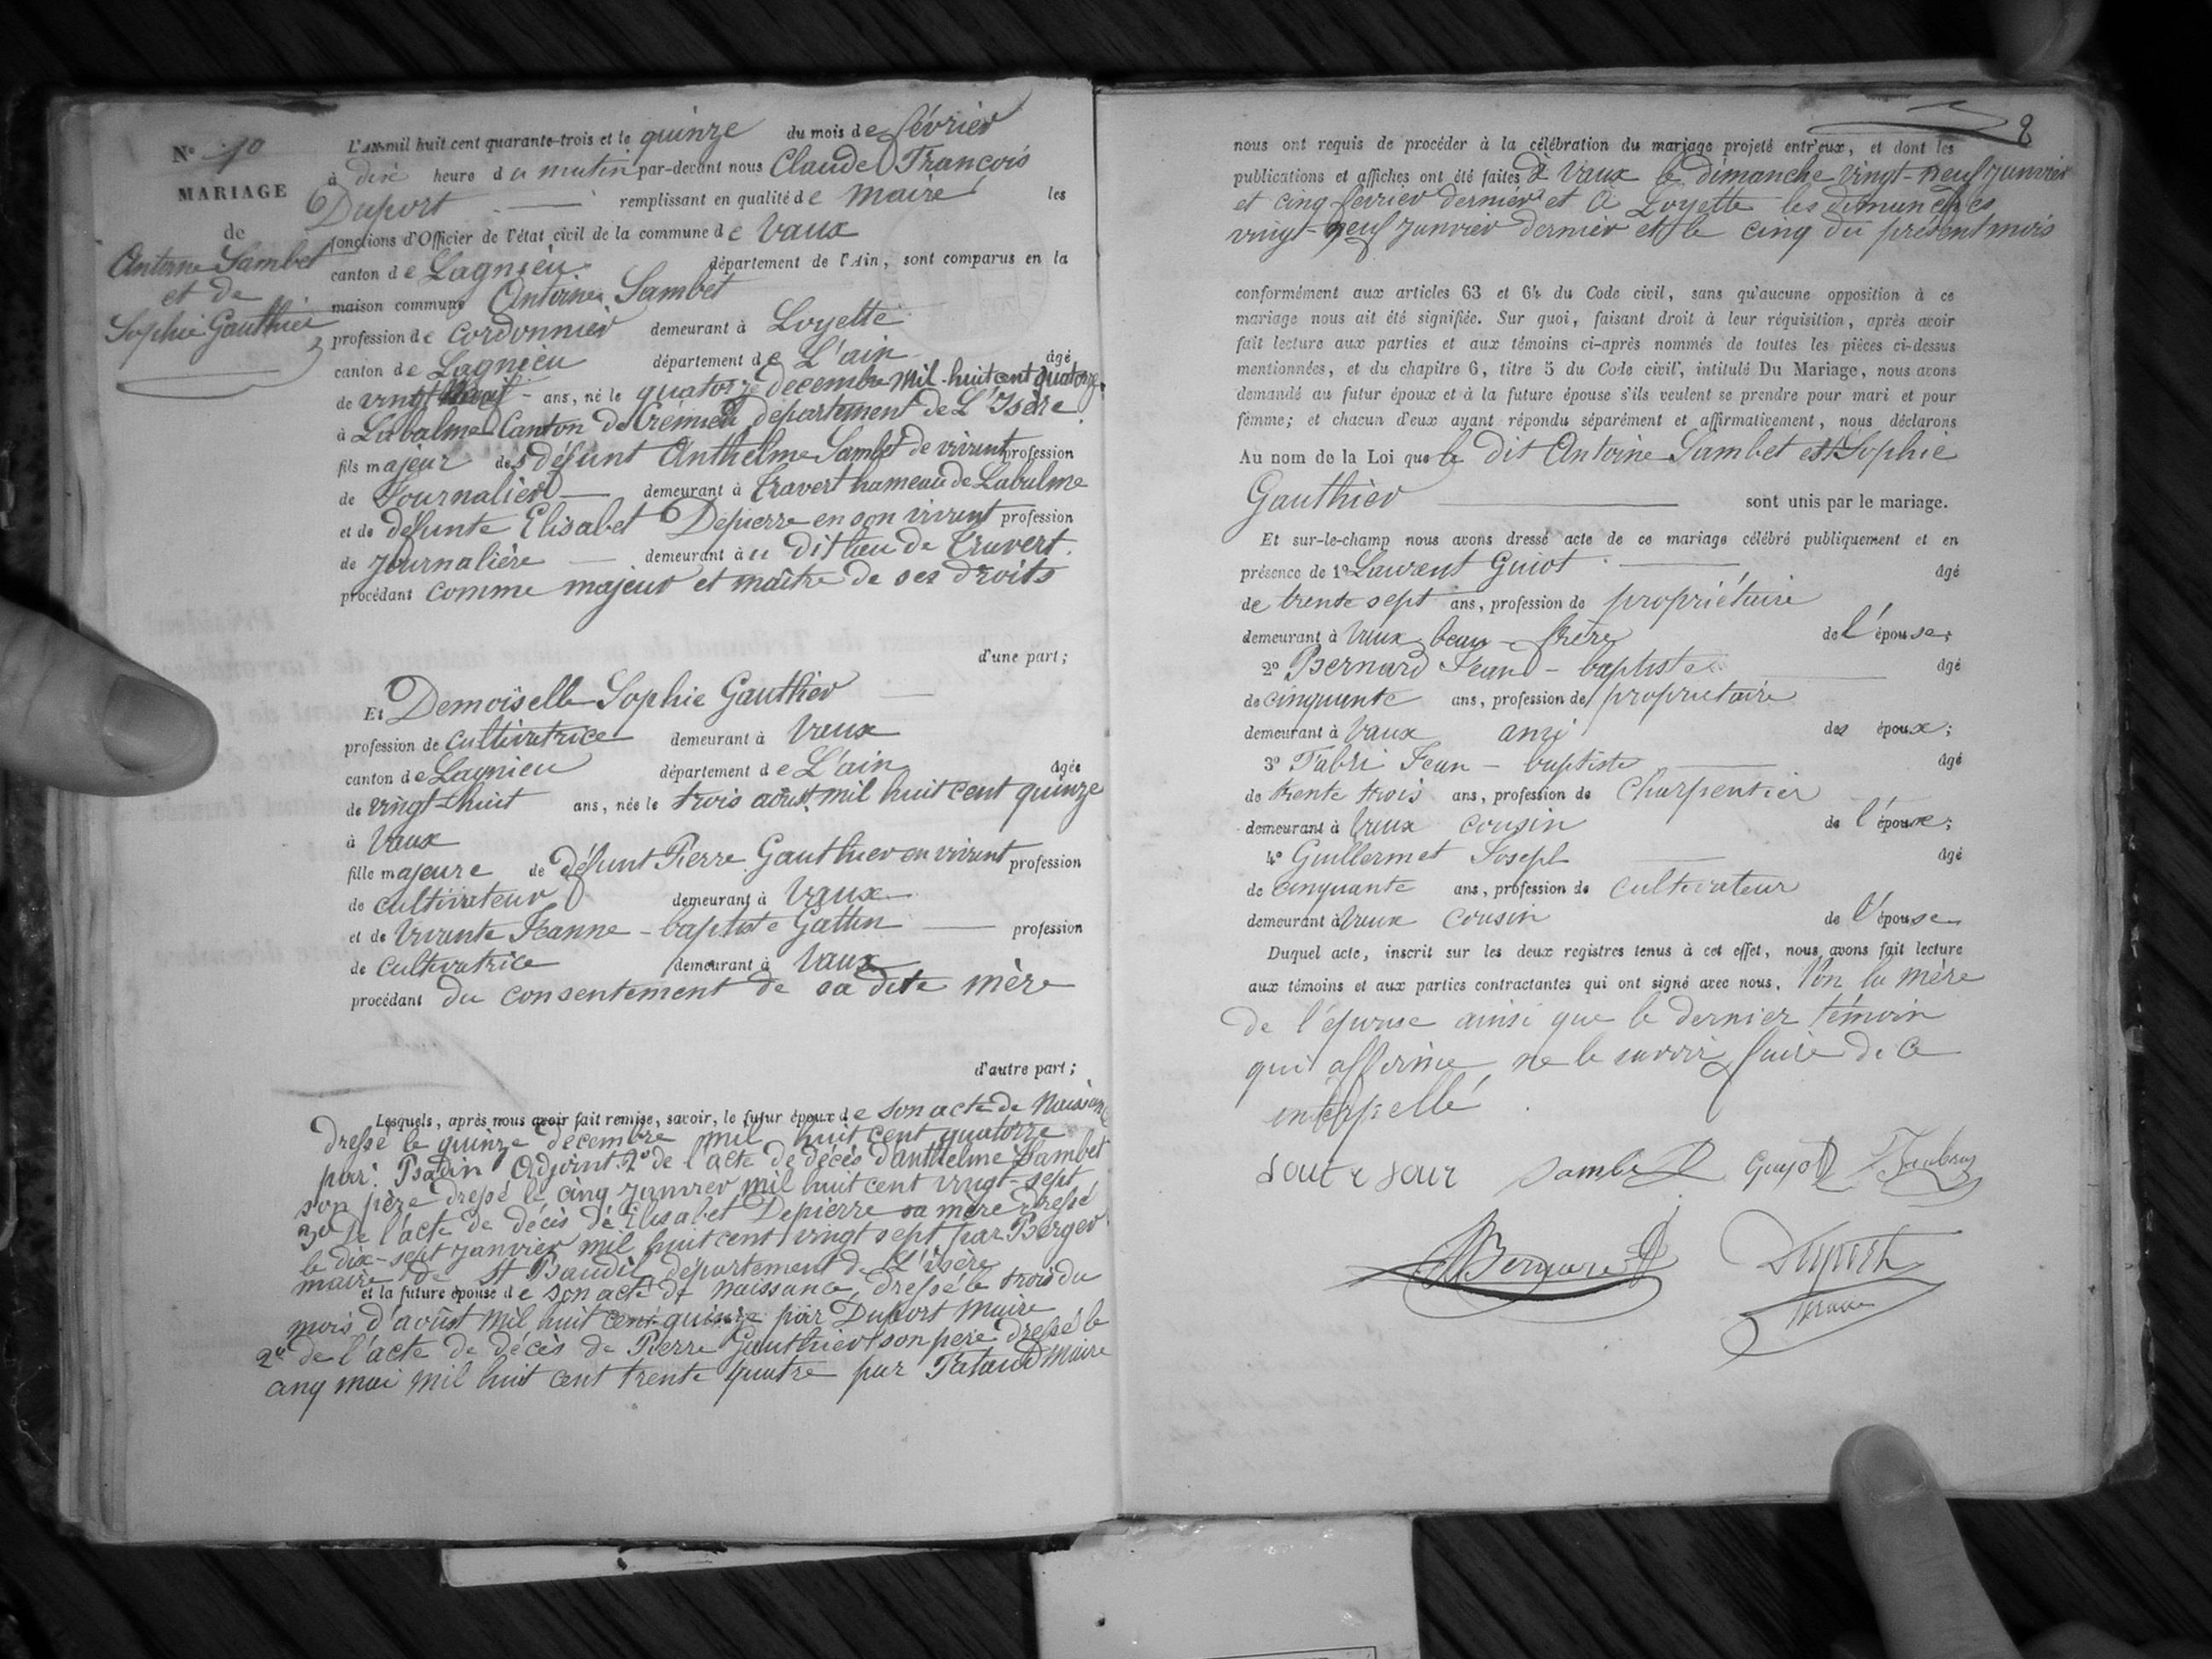 N° 10
MARIAGE
de
Antoine Sambet
et de
Sophie Gauthier
L'AN mil huit cent quarante-trois et le quinze du mois de février
à dix heure du matin par-devant nous Claude François
Duport remplissant en qualité de maire les
fonctions d'Officier de l'état civil de la commune de Vaux
canton de Lagnieu département de l'Ain, sont comparus en la
maison commune Antoine Sambet
profession de cordonnier demeurant à Loyette
canton de Lagnieu département de L'ain âgé
de vingt ans, né le quatorze decembre mil huit cent quatorze
à Labalme Canton de Crémieu département de L'Isère
fils majeur des défunt Anthelme Sambet de vivant profession
de Journalier demeurant à Travert hameau de Labalme
et de defunte Elisabet Depierre en son vivant profession
de Journalière demeurant à u dit lieu de Travert
procédant comme majeur et maître de ses droits
d'une part;
Et Demoiselle Sophie Gauthier
profession de cultivatrice demeurant à Vaux
canton de Lagnieu département de L'ain âgée
de vingt-huit ans, née le trois août mil huit cent quinze
à Vaux
fille majeure de défunt Pierre Gauthier en vivant profession
de cultivateur demeurant à Vaux
et de vivante Jeanne-baptiste Gattin profession
de cultivatrice demeurant à Vaux
procédant du consentement de sa dite mère
d'autre part;
Lesquels, après nous avoir fait remise, savoir, le futur époux de son acte de Naissance
dressé le quinze decembre mil huit cent quatorze
par Badin Adjoint 2° de l'acte de décès d'anthelme Sambet
son père dressé le cinq janvier mil huit cent vingt-sept
3° de l'acte de décès de Elisabet Depierre sa mère dressé
le dix-sept janvier mil huit cent vingt sept par Berger
maire de St Baudil département de L'Isère
et la future épouse de son acte de naissance dressé le trois du
mois d'août mil huit cent quinze par Duport maire
2° de l'acte de décès de Pierre Gauthier son père dressé le
cinq mai mil huit cent trente quatre par maire
8
nous ont requis de procéder à la célébration du mariage projeté entr'eux, et dont les
publications et affiches ont été faites à Vaux le dimanche vingt-neuf janvier
et cinq février dernier et à Loyette les dimanches
vingt-neuf janvier dernier et le cinq du présent mois
conformément aux articles 63 et 64 du Code civil, sans qu'aucune opposition à ce
mariage nous ait été signifiée. Sur quoi, faisant droit à leur réquisition, après avoir
fait lecture aux parties et aux témoins ci-après nommés de toutes les pièces ci-dessus
mentionnées, et du chapitre 6, titre 5 du Code civil, intitulé Du Mariage, nous avons
demandé au futur époux et à la future épouse s'ils veulent se prendre pour mari et pour
femme; et chacun d'eux ayant répondu séparément et affirmativement, nous déclarons
Au nom de la Loi que le dit Antoine Sambet et Sophie
Gauthier sont unis par le mariage.
Et sur-le-champ nous avons dressé acte de ce mariage célébré publiquement et en
présence de 1° Laurent Guiot âgé
de trente sept ans, profession de propriétaire
demeurant à Vaux beau-frère de l'épouse;
2° Bernard Jean-baptiste âgé
de cinquante ans, profession de propriétaire
demeurant à Vaux ami des époux;
3° Fabri Jean-baptiste âgé
de trente trois ans, profession de Charpentier
demeurant à Vaux cousin de l'épouse;
4° Guillermet Joseph âgé
de cinquante ans, profession de cultivateur
demeurant à Vaux cousin de l'épouse
Duquel acte, inscrit sur les deux registres tenus à cet effet, nous avons fait lecture
aux témoins et aux parties contractantes qui ont signé avec nous, Non la mère
de l'épouse ainsi que le dernier témoin
qui affirme ne le savoir faire de ce
interpellé
Sambet Guyot
Bernard Duport
maire